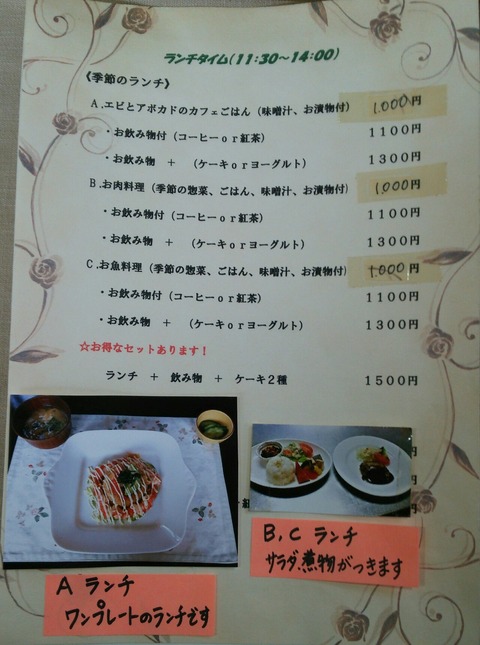 ランチタイム(11:30～14:00)
《季節のランチ》
A.エビとアボカドのカフェごはん(味噌汁、お漬物付) 1.000円
・お飲み物付(コーヒーor紅茶) 1100円
・お飲み物 ＋ (ケーキorヨーグルト) 1300円
B.お肉料理(季節の惣菜、ごはん、味噌汁、お漬物付) 1.000円
・お飲み物付(コーヒーor紅茶) 1100円
・お飲み物 ＋ (ケーキorヨーグルト) 1300円
C.お魚料理(季節の惣菜、ごはん、味噌汁、お漬物付) 1.000円
・お飲み物付(コーヒーor紅茶) 1100円
・お飲み物 ＋ (ケーキorヨーグルト) 1300円
☆お得なセットあります！
ランチ ＋ 飲み物 ＋ ケーキ2種 1500円
円
円
紅
円
B,C ランチ
サラダ、煮物がつきます
A ランチ
ワンプレートのランチです